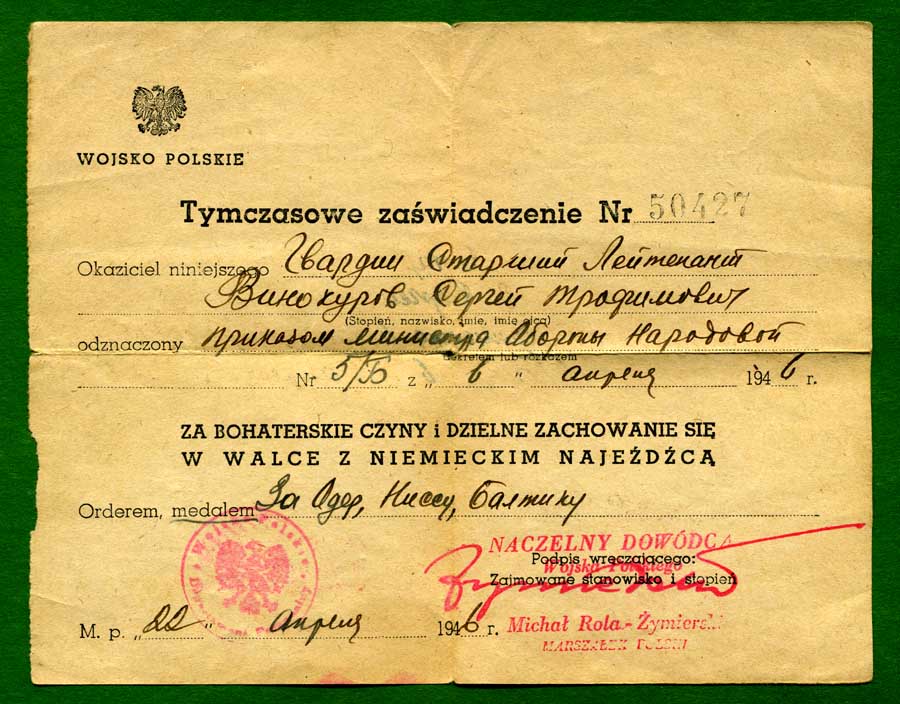 WOJSKO POLSKIE
Tymczasowe zaświadczenie Nr 50427
Okaziciel niniejszego Гвардии Старший Лейтенант
Винокуров Сергей Трофимович
(Stopień, nazwisko, imię, imię ojca)
odznaczony приказом Министра Обороны Народовой
dekretem lub rozkazem
Nr 5/50 z „ 6 " апреля 1946 r.
ZA BOHATERSKIE CZYNY i DZIELNE ZACHOWANIE SIĘ
W WALCE Z NIEMIECKIM NAJEŹDŹCĄ
Orderem, medalem За Одер, Ниссу, Балтику
NACZELNY DOWÓDCA
Podpis wręczającego:
Wojska Polskiego
Zajmowane stanowisko i stopień
M. p. „22" апреля 1946 r.
Michał Rola-Żymierski
MARSZAŁEK POLSKI